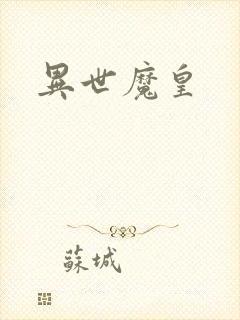 異世魔皇
蘇城